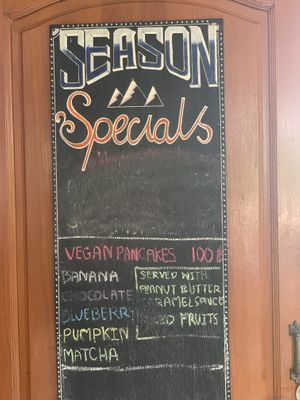 SEASON
Specials
VEGAN PANCAKES 100฿
BANANA
CHOCOLATE
BLUEBERRY
PUMPKIN
MATCHA
SERVED WITH
PEANUT BUTTER
CARAMEL SAUCE
FRUITS